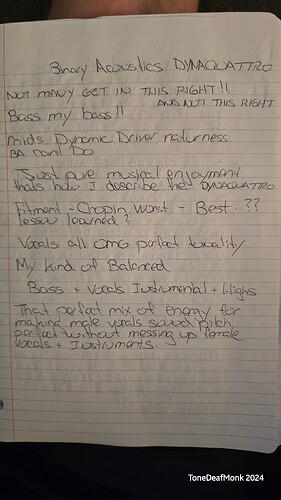 Binary Acoustics DYNAQUATTRO
NOT MANY GET IN THIS RIGHT!!
AND NOT THIS RIGHT
Bass my bass!!
mids Dynamic Driver naturness
BA cant Do
Just pure musical enjoyment
thats how I describe the DYNAQUATTRO
Fitment - Chopin Worst - Best. ??
lesson learned?
Vocals all OMG perfect tonality
My kind of Balanced
Bass + Vocals Instrumental + Highs
That perfect mix of energy for
making male vocals sound pitch
perfect without messing up female
vocals + Instruments.
ToneDeafMonk 2024